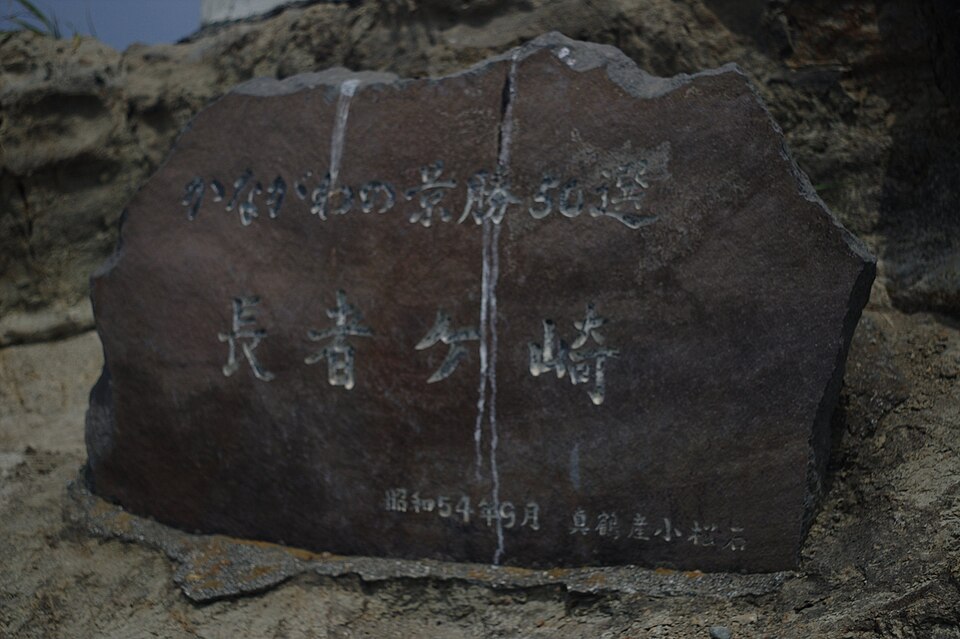 かながわの景勝50選
長者ヶ崎
昭和54年9月 真鶴産小松石